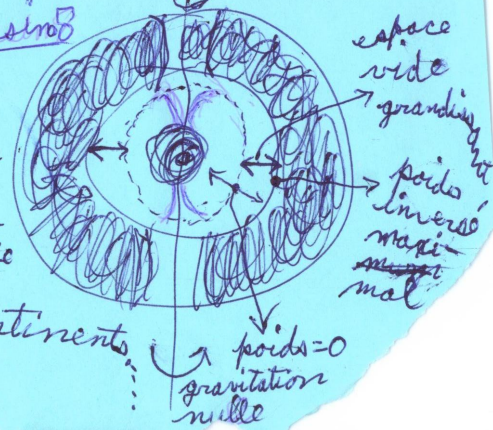 espace
vide
grandissant
poids
inversé
maxi-
mal
tinents
poids=0
gravitation
nulle